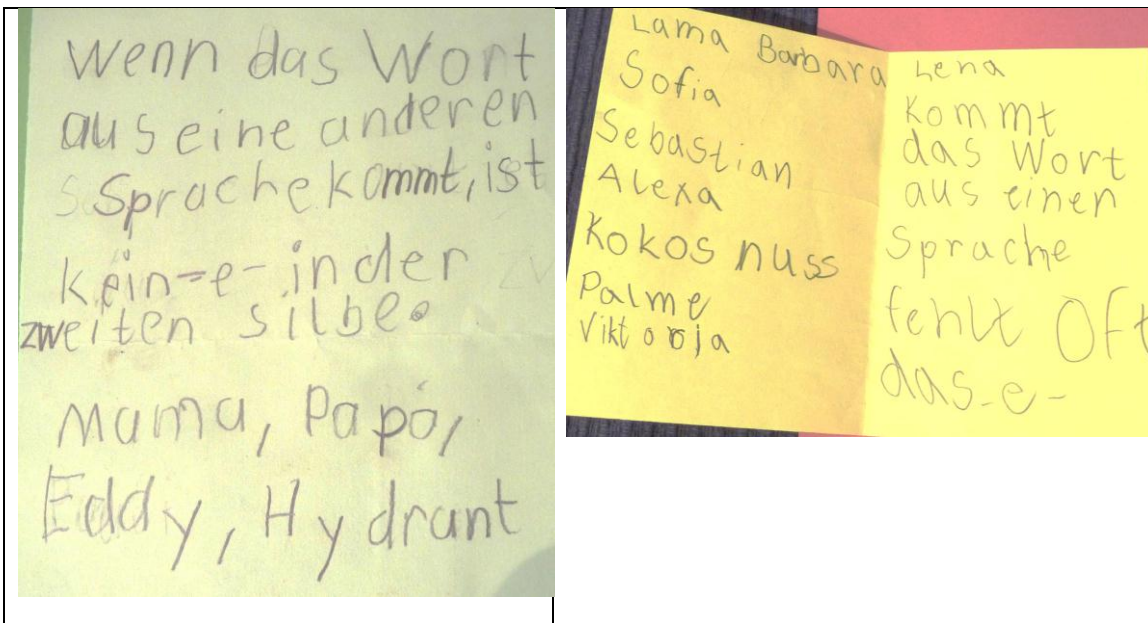 Wenn das Wort
aus eine anderen
Sprache kommt, ist
kein -e- in der
zweiten silbe.
Mama, Papa,
Eddy, Hydrant
Lama Barbara
Sofia
Sebastian
Alexa
Kokos nuss
Palme
Viktoria
Lena
kommt
das Wort
aus einen
Sprache
fehlt Oft
das -e-